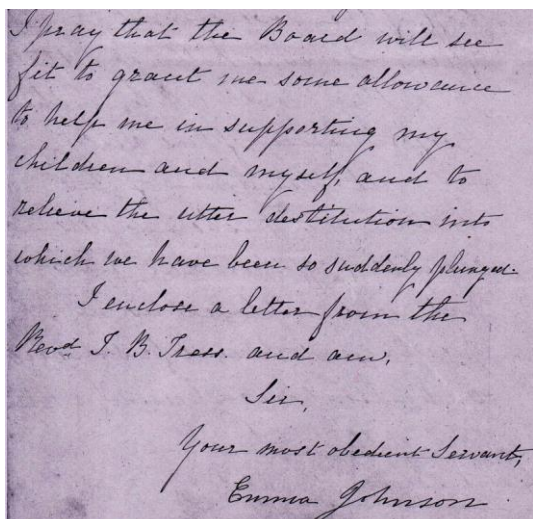 I pray that the Board will see
fit to grant me some allowance
to help me in supporting my
children and myself, and to
relieve the utter destitution into
which we have been so suddenly plunged.
I enclose a letter from the
Revd T. B. Tress. and am,
Sir,
Your most obedient Servant,
Emma Johnson.